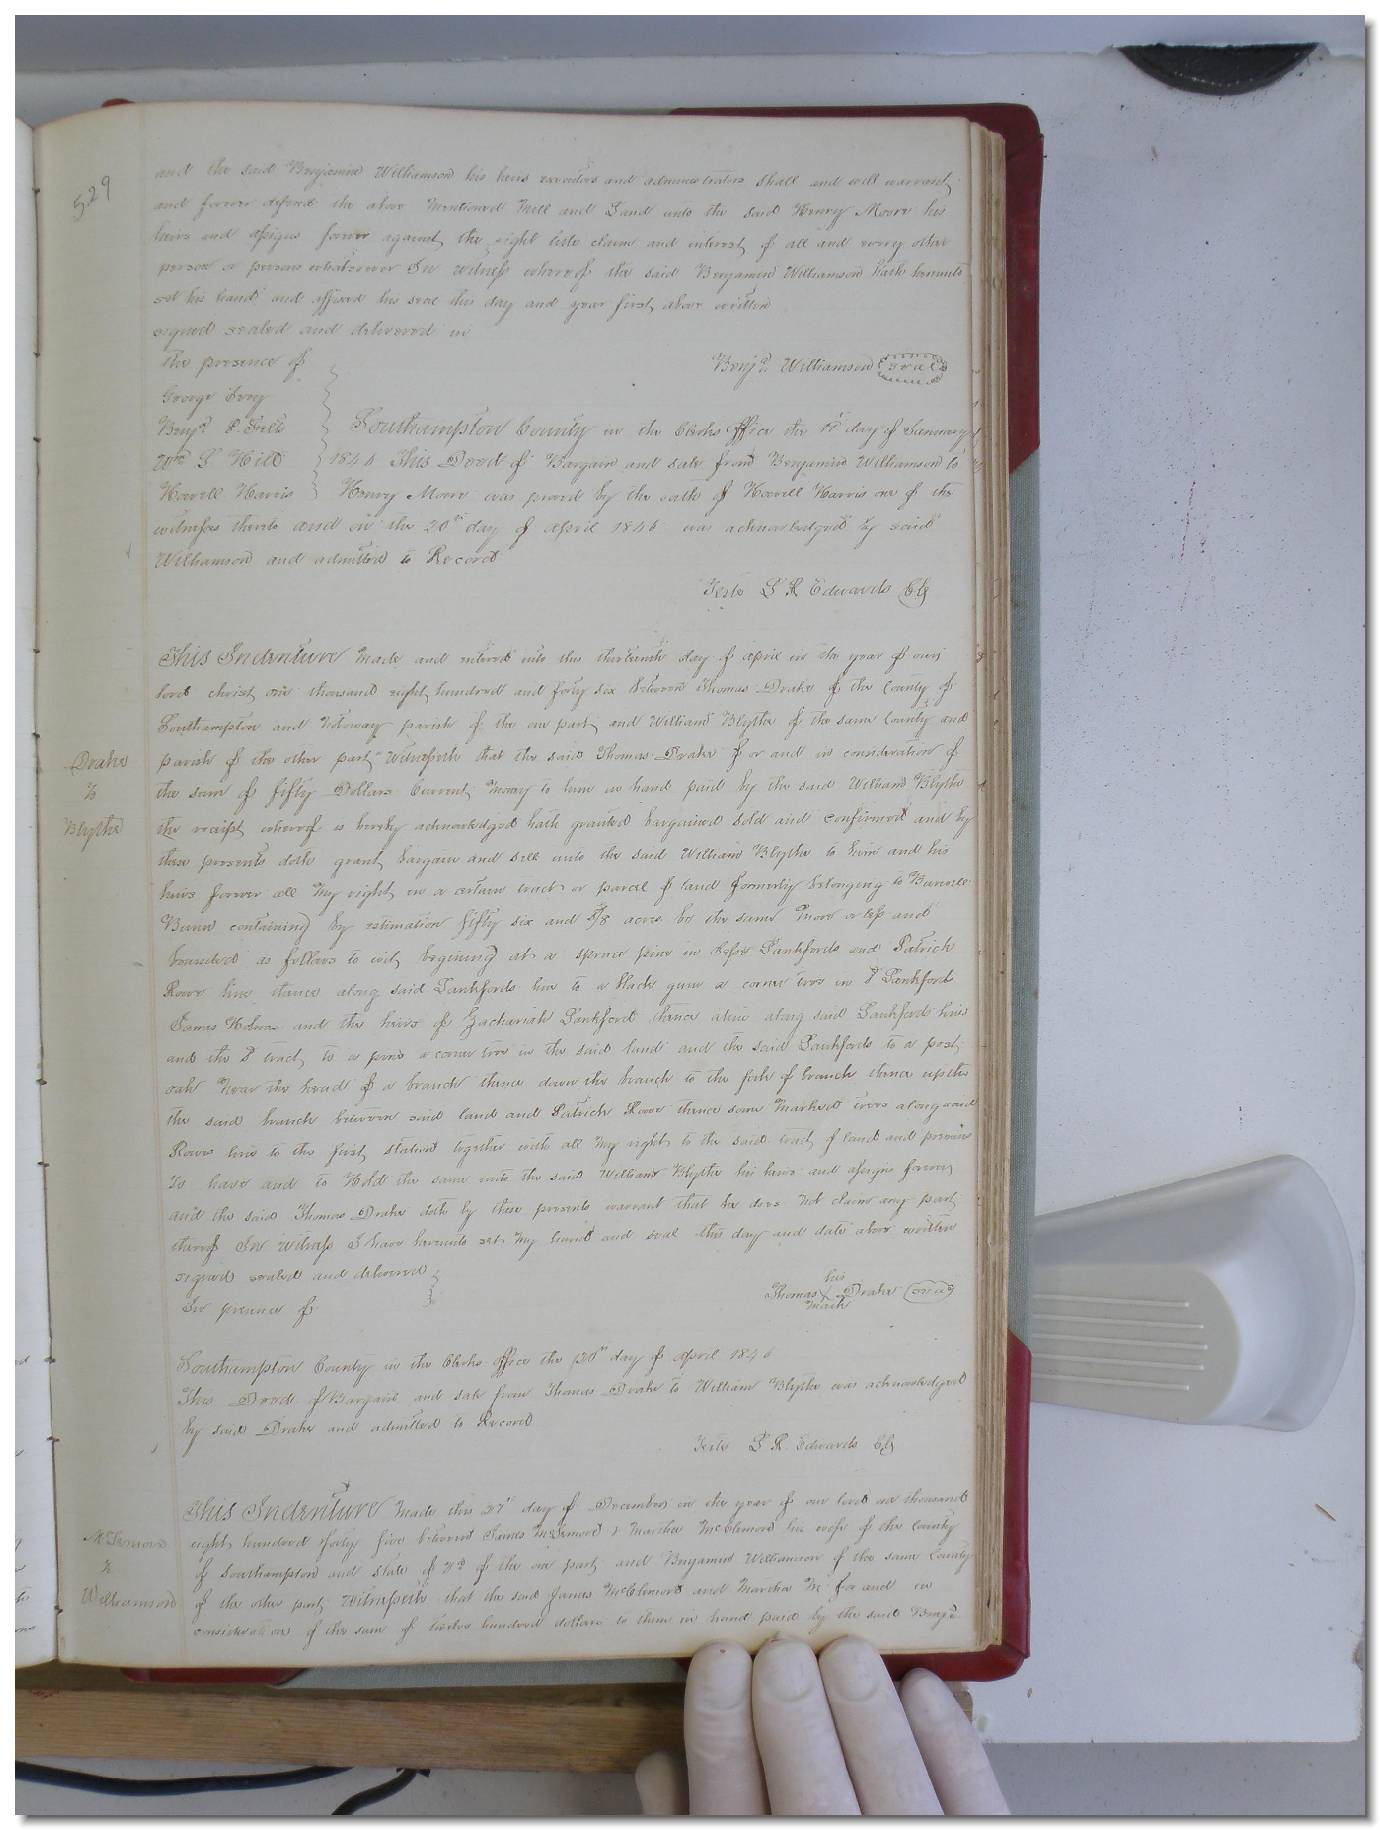 529
and the said Benjamin Williamson his heirs executors and administrators shall and will warrant
and forever defend the above mentioned Mill and Land unto the said Henry Moore his
heirs and assigns forever against the right title claim and interest of all and every other
person or persons whatsoever In witness whereof the said Benjamin Williamson hath hereunto
set his hand and affixed his seal this day and year first above written
signed sealed and delivered in
the presence of
Benjn. Williamson seal
George
Benjn.
Wm
Howell Harris
Southampton County in the Clerks office the day of January
1846 This Deed of Bargain and sale from Benjamin Williamson to
Henry Moore was proved by the oath of Howell Harris one of the
witnesses thereto and on the 20th day of April 1846 was acknowledged by said
Williamson and admitted to Record
Teste L R Edwards Clk
This Indenture Made and entered into this thirteenth day of April in the year of our
lord christ one thousand eight hundred and forty six between Thomas Drake of the County of
Southampton and Notoway parish of the one part and William Blythe of the same County and
Drake
to
Blythe
parish of the other part Witnesseth that the said Thomas Drake for and in consideration of
the sum of fifty Dollars Current Money to him in hand paid by the said William Blythe
the receipt whereof is hereby acknowledged hath granted bargained sold and confirmed and by
these presents doth grant bargain and sell unto the said William Blythe to him and his
heirs forever all My right in a certain tract or parcel of land formerly belonging to
containing by estimation fifty six and acres be the same more or less and
bounded as follows to wit begining at a pine in Lankfords and Patrick
line thence along said Lankfords line to a black gum a corner tree in Lankford
James and the heirs of Zachariah Lankford thence along said Lankfords line
and the tract to a pine a corner tree in the said land and the said Lankfords to a post
oak Near the head of a branch thence down the branch to the fork of branch thence up the
the said branch between said land and Patrick thence some Marked trees along said
line to the first station together with all My right to the said tract of land and
To have and to Hold the same unto the said William Blythe his heirs and assigns forever
and the said Thomas Drake doth by these presents warrant that he does Not claim any part
thereof In Witness I have hereunto set My hand and seal this day and date above written
signed sealed and delivered
In presence of
his
Thomas X Drake seal
mark
Southampton County in the Clerks office the 20th day of April 1846
This Deed of Bargain and sale from Thomas Drake to William Blythe was acknowledged
by said Drake and admitted to Record
Teste L R. Edwards Clk
This Indenture Made this 27th day of December in the year of our lord one thousand
eight hundred forty five between James & Martha McClemord his wife of the County
to
Williamson
of Southampton and State of Va of the one part and Benjamin Williamson of the same County
of the other part Witnesseth that the said James McClemord and Martha M for and in
consideration of the sum of twelve hundred dollars to them in hand paid by the said Benjn